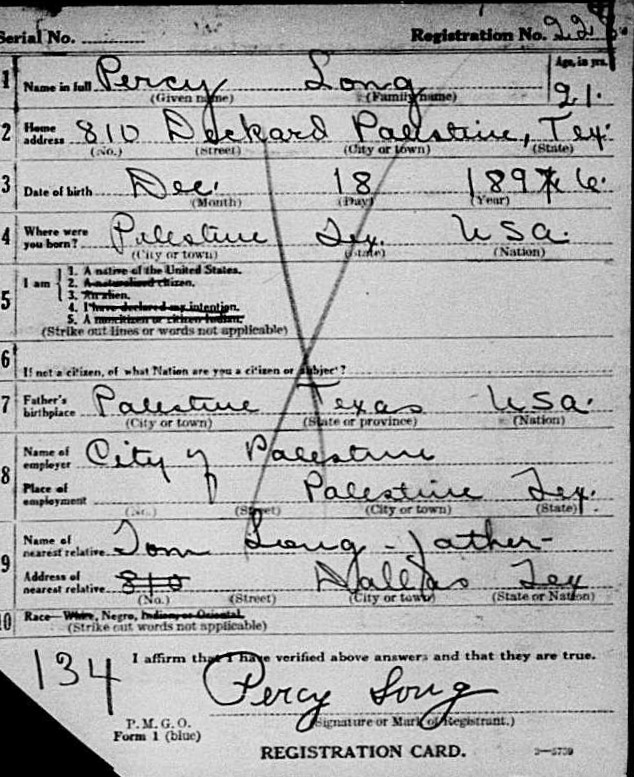 Serial No. Registration No. 22
1 Name in full Percy Long Age, in yrs.
(Given name) (Family name) 21.
2 Home address 810 Deckard Palestine, Tex.
(No.) (Street) (City or town) (State)
3 Date of birth Dec. 18 1896.
(Month) (Day) (Year)
4 Where were you born? Palestine Tex. USA.
(City or town) (State) (Nation)
5 I am
1. A native of the United States.
2. A naturalized citizen.
3. An alien.
4. I have declared my intention.
5. A noncitizen or citizen Indian.
(Strike out lines or words not applicable)
6 If not a citizen, of what Nation are you a citizen or subject?
7 Father's birthplace Palestine Texas USA.
(City or town) (State or province) (Nation)
8 Name of employer City of Palestine
Place of employment Palestine Tex.
(No.) (Street) (City or town) (State)
9 Name of nearest relative Tom Long - father -
Address of nearest relative 810 Dallas Tex
(No.) (Street) (City or town) (State or Nation)
10 Race— White, Negro, Indian, or Oriental.
(Strike out words not applicable)
134 I affirm that I have verified above answers and that they are true.
Percy Long
P. M. G. O. (Signature or Mark of Registrant.)
Form 1 (blue)
REGISTRATION CARD. 3—5739